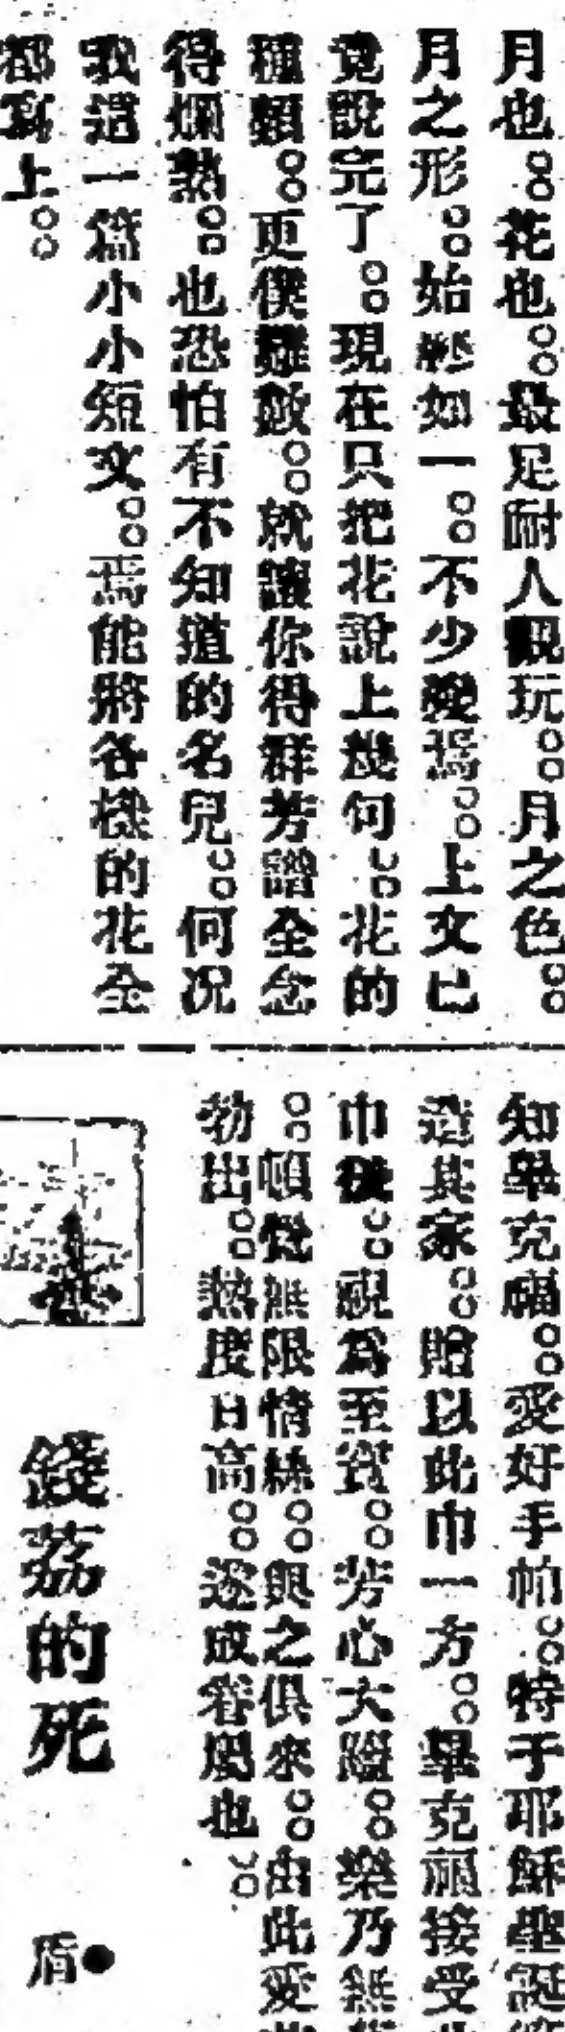 月也。。花也。。最足耐人翫玩。。月之色。。
月之形。。始終如一。。不少變焉。。上文已
竟說完了。。現在只把花說上幾句。。花的
種類。。更僕難數。。就讓你得群芳譜全念
得爛熟。。也恐怕有不知道的名兒。。何況
我這一篇小小短文。。焉能將各樣的花全
都寫上。。
知畢克福。。愛好手帕。。特于耶穌聖誕
造其家。。贈以此巾一方。。畢克福接受
巾後。。視為至寶。。芳心大隨。。樂乃無
。。頓覺無限情絲。。與之俱來。。由此愛
勃出。。熱度日高。。遂成眷屬也。。
錢荔的死
盾●